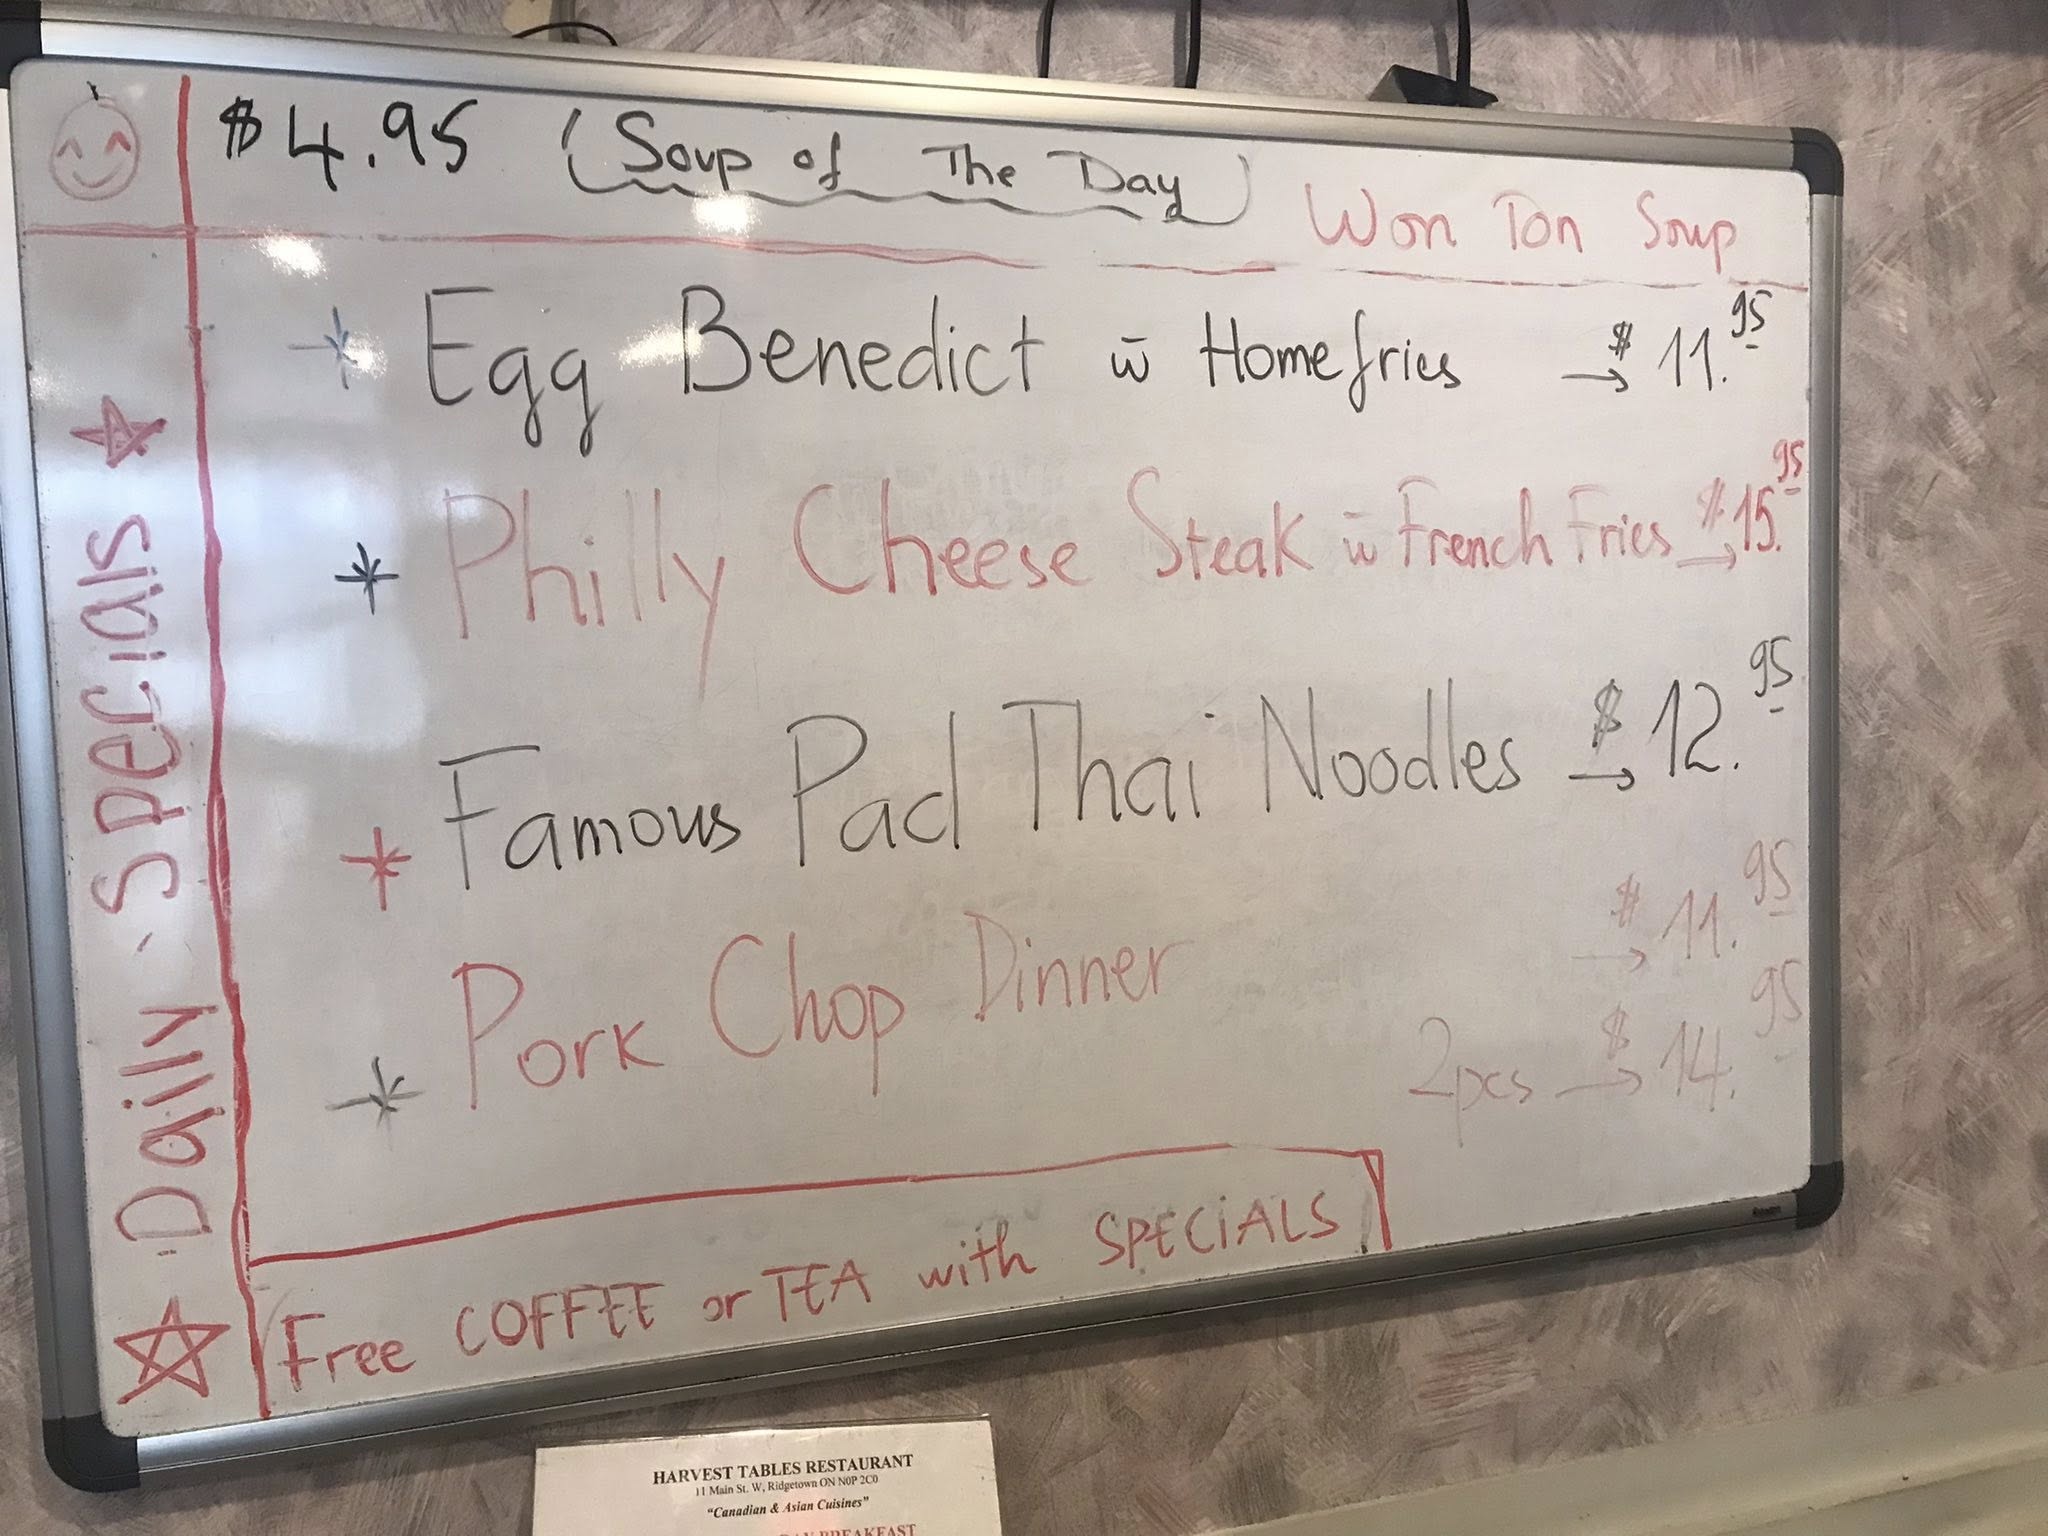 $4.95 (Soup of The Day) Won Ton Soup
Daily Specials
Egg Benedict w̄ Homefries → $11.95
Philly Cheese Steak w̄ French Fries → $15.95
Famous Pad Thai Noodles → $12.95
Pork Chop Dinner → $11.95
2pcs → $14.95
Free COFFEE or TEA with SPECiALS
HARVEST TABLES RESTAURANT
11 Main St. W, Ridgetown ON N0P 2C0
"Canadian & Asian Cuisines"
BREAKFAST